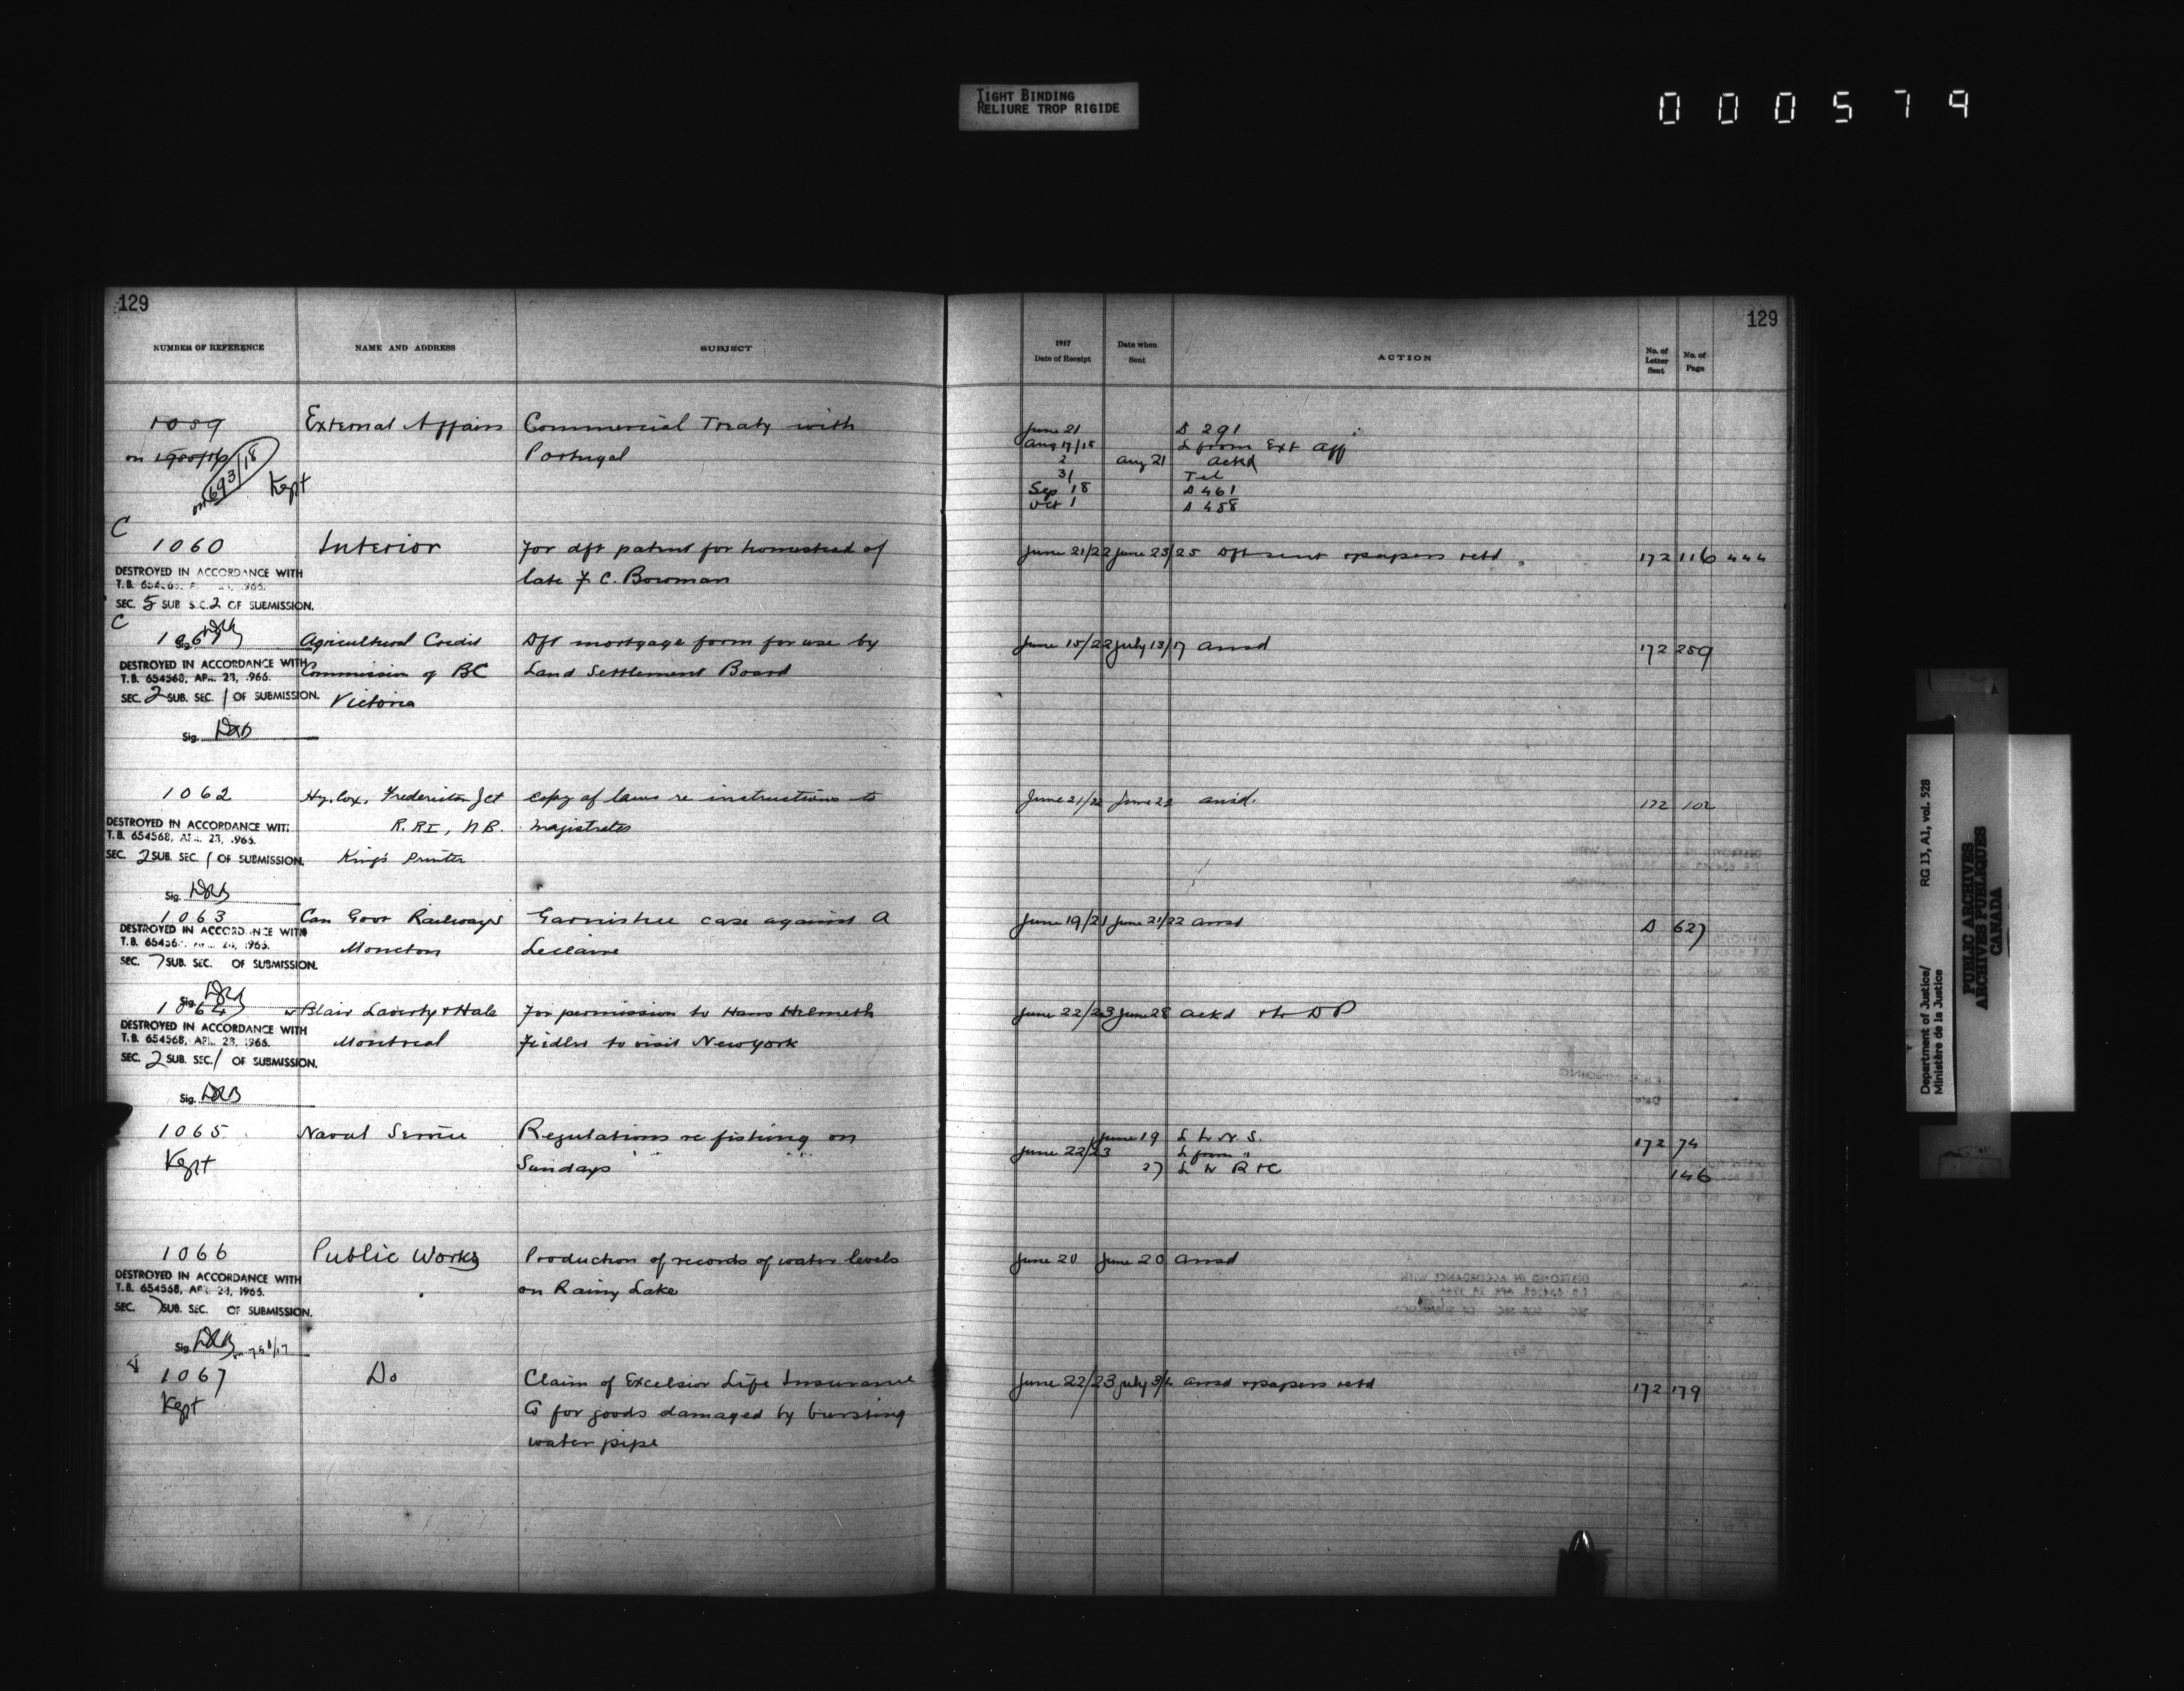 TIGHT BINDING
RELIURE TROP RIGIDE
000579
129
NUMBER OF REFERENCE
NAME AND ADDRESS
SUBJECT
1059
External Affairs
Commercial Treaty with
Portugal
on 693/18
Kept
C
1060
Interior
For dft patent for homestead of
late F. C. Bowman
DESTROYED IN ACCORDANCE WITH
SEC. 5 SUB SEC. 2 OF SUBMISSION.
C
1061
Sig.
Agricultural Credit
Commission of BC
Victoria
Dft mortgage form for use by
Land Settlement Board
DESTROYED IN ACCORDANCE WITH
T.B. 654568, APR. 28, 1966.
SEC. 2 SUB. SEC. 1 OF SUBMISSION.
Sig. DRB
1062
Hy. Cox, Fredericton Jct
R.R.I, N.B.
King's Printer
Copy of laws re instructions to
magistrates
DESTROYED IN ACCORDANCE WITH
T.B. 654568, APR. 28, 1966.
SEC. 2 SUB. SEC. 1 OF SUBMISSION.
Sig. DRB
1063
Can Govt Railways
Moncton
Garnishee case against A
Leclaire
DESTROYED IN ACCORDANCE WITH
SEC. 7 SUB. SEC. OF SUBMISSION.
Sig. DRB
1064
Blair Laverty & Hale
Montreal
For permission to Hans Helmuth
Fiedler to visit New York
DESTROYED IN ACCORDANCE WITH
T.B. 654568, APR. 28, 1966.
SEC. 2 SUB. SEC. 1 OF SUBMISSION.
Sig. DRB
1065
Kept
Naval Service
Regulations re fishing on
Sundays
1066
Public Works
Production of records of water levels
on Rainy Lake
DESTROYED IN ACCORDANCE WITH
T.B. 654568, APR. 28, 1966.
SEC. 7 SUB. SEC. OF SUBMISSION.
Sig. DRB
1067
Kept
Do
Claim of Excelsior Life Insurance
Co for goods damaged by bursting
water pipe
129
1917
Date of Receipt
Date when
Sent
ACTION
No. of
Letter
Sent
No. of
Page
June 21 D 291
Aug 17/18 L from Ext Aff
2 Aug 21 ackd
31 Tel
Sep 18 D 461
Oct 1 D 488
June 21/22 June 23/25 Dft sent & papers retd 172 116 444
June 15/22 July 13/17 ansd 172 289
June 21/22 June 22 ansd. 172 102
June 19/21 June 21/22 ansd D 627
June 22/23 June 28 ackd
June 19 L to N S. 172 74
June 22/23 L from "
27 146
June 20 June 20 ansd
June 22/23 July 3/4 ansd & papers retd 172 179
Department of Justice/
Ministère de la Justice
RG 13, A1, vol. 528
PUBLIC ARCHIVES
ARCHIVES PUBLIQUES
CANADA